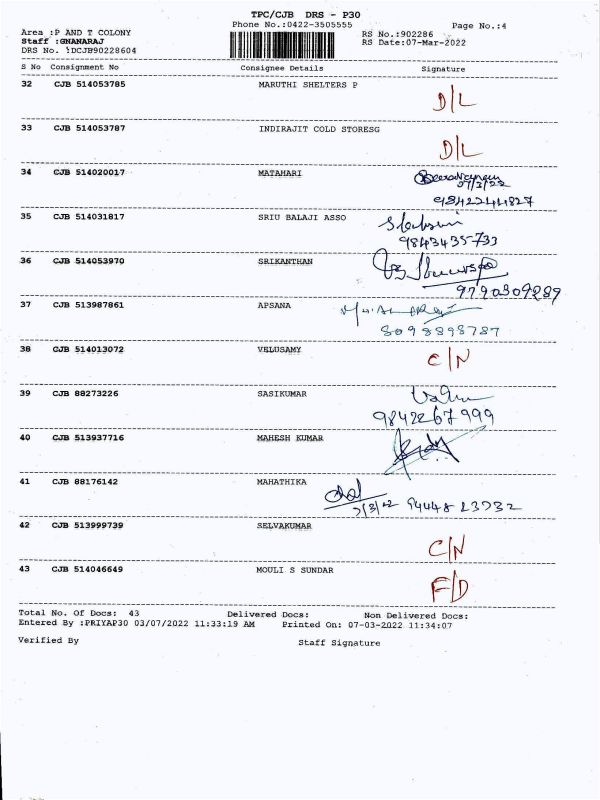 TPC/CJB DRS - P30
Phone No.:0422-3505555
Page No.:4
Area :P AND T COLONY
Staff :GNANARAJ
RS No.:902286
RS Date:07-Mar-2022
DRS No. :DCJB90228604
S No Consignment No Consignee Details Signature
32 CJB 514053785 MARUTHI SHELTERS P
D/L
33 CJB 514053787 INDIRAJIT COLD STORESG
D/L
34 CJB 514020017 MATAHARI
07/3/22
9842244827
35 CJB 514031817 SRIU BALAJI ASSO
9843435733
36 CJB 514053970 SRIKANTHAN
9790309289
37 CJB 513987861 APSANA
8098898787
38 CJB 514013072 VELUSAMY
C/N
39 CJB 88273226 SASIKUMAR
9842267999
40 CJB 513937716 MAHESH KUMAR
41 CJB 88176142 MAHATHIKA
7/3/22 94448 23732
42 CJB 513999739 SELVAKUMAR
C/N
43 CJB 514046649 MOULI S SUNDAR
F/D
Total No. Of Docs: 43 Delivered Docs: Non Delivered Docs:
Entered By :PRIYAP30 03/07/2022 11:33:19 AM Printed On: 07-03-2022 11:34:07
Verified By Staff Signature